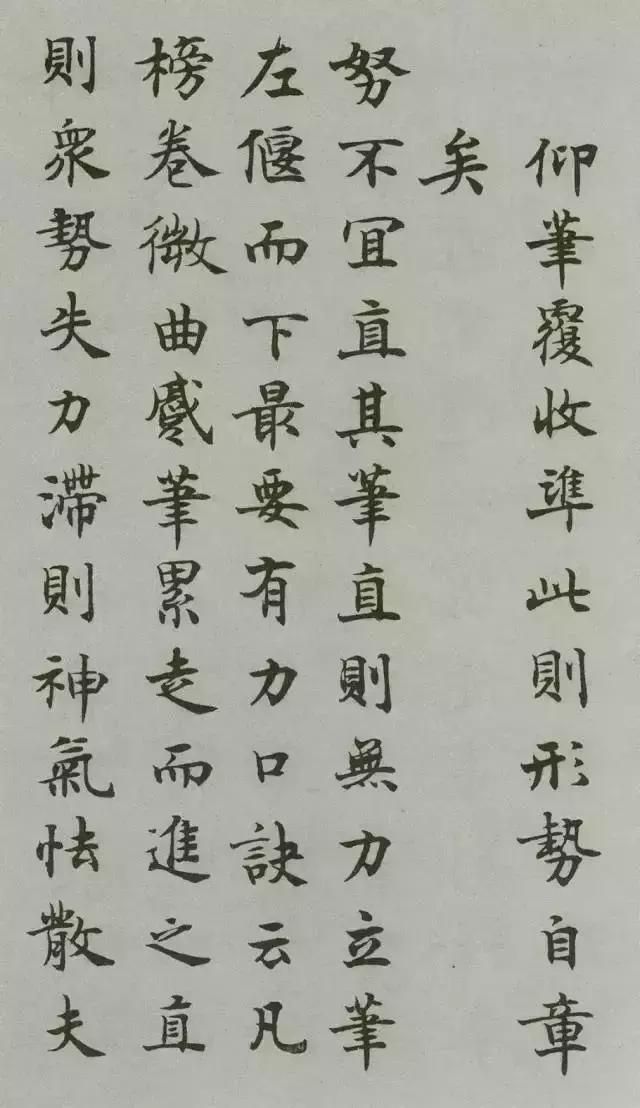 仰筆覆收準此則形勢自章
矣
努不宜直其筆直則無力立筆
左偃而下最要有力口訣云凡
榜卷微曲蹙筆累走而進之直
則衆勢失力滯則神氣怯散夫